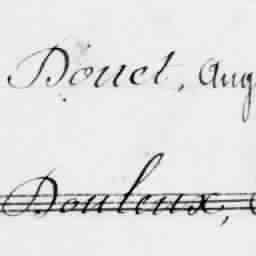 Douet, Aug
Douleux,